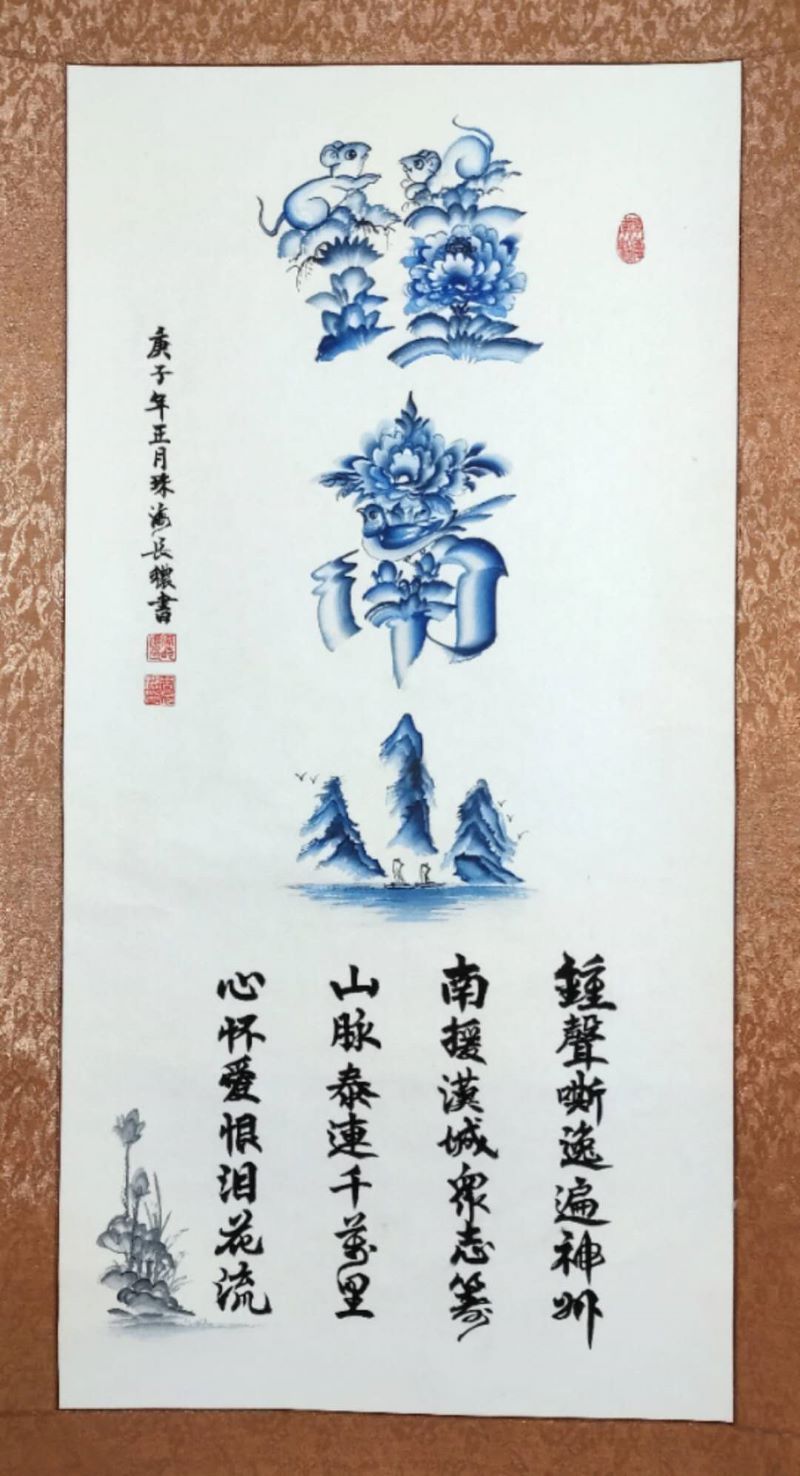 鍾南山
鍾聲嘶逸遍神州
南援漢城衆志籌
山脉泰連千萬里
心怀愛恨泪花流
庚子年正月珠海長書